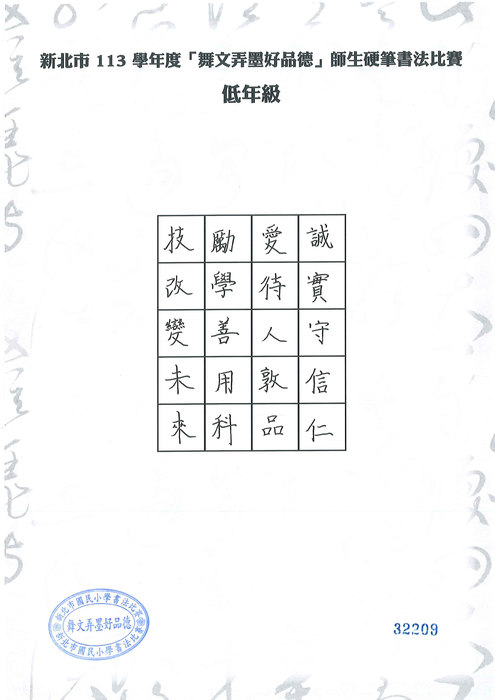 新北市 113 學年度「舞文弄墨好品德」師生硬筆書法比賽
低年級
誠實守信仁
愛待人敦品
勵學善用科
技改變未來
新北市國民小學書法比賽
舞文弄墨好品德
新北市國民小學書法比賽
32209